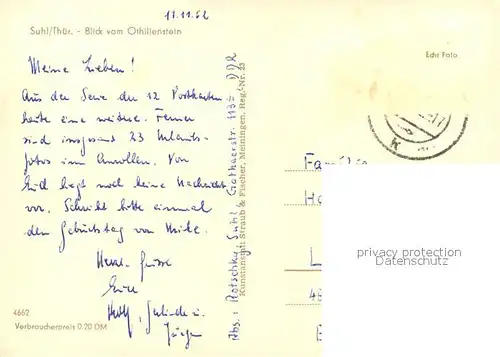 11.11.62
Suhl/Thür. - Blick vom Othilienstein
Meine Lieben!
Aus der Serie der 12 Postkarten
heute eine weitere. Ferner
sind insgesamt 23 Urlaubs-
fotos im Anrollen. Von
Euch liegt noch keine Nachricht
vor. Schreibt bitte einmal
den Geburtstag von
Herzl. Grüsse
Eure
Rolf, Gerlinde u.
Jürgen
4662
Verbraucherpreis 0.20 DM
Abs.: Plotschky, Suhl, Gothaerstr. 113 DDR
Kunstanstalt Straub & Fischer, Meiningen, Reg.-Nr. 23
Echt Foto
Familie
Ha
L
privacy protection
Datenschutz